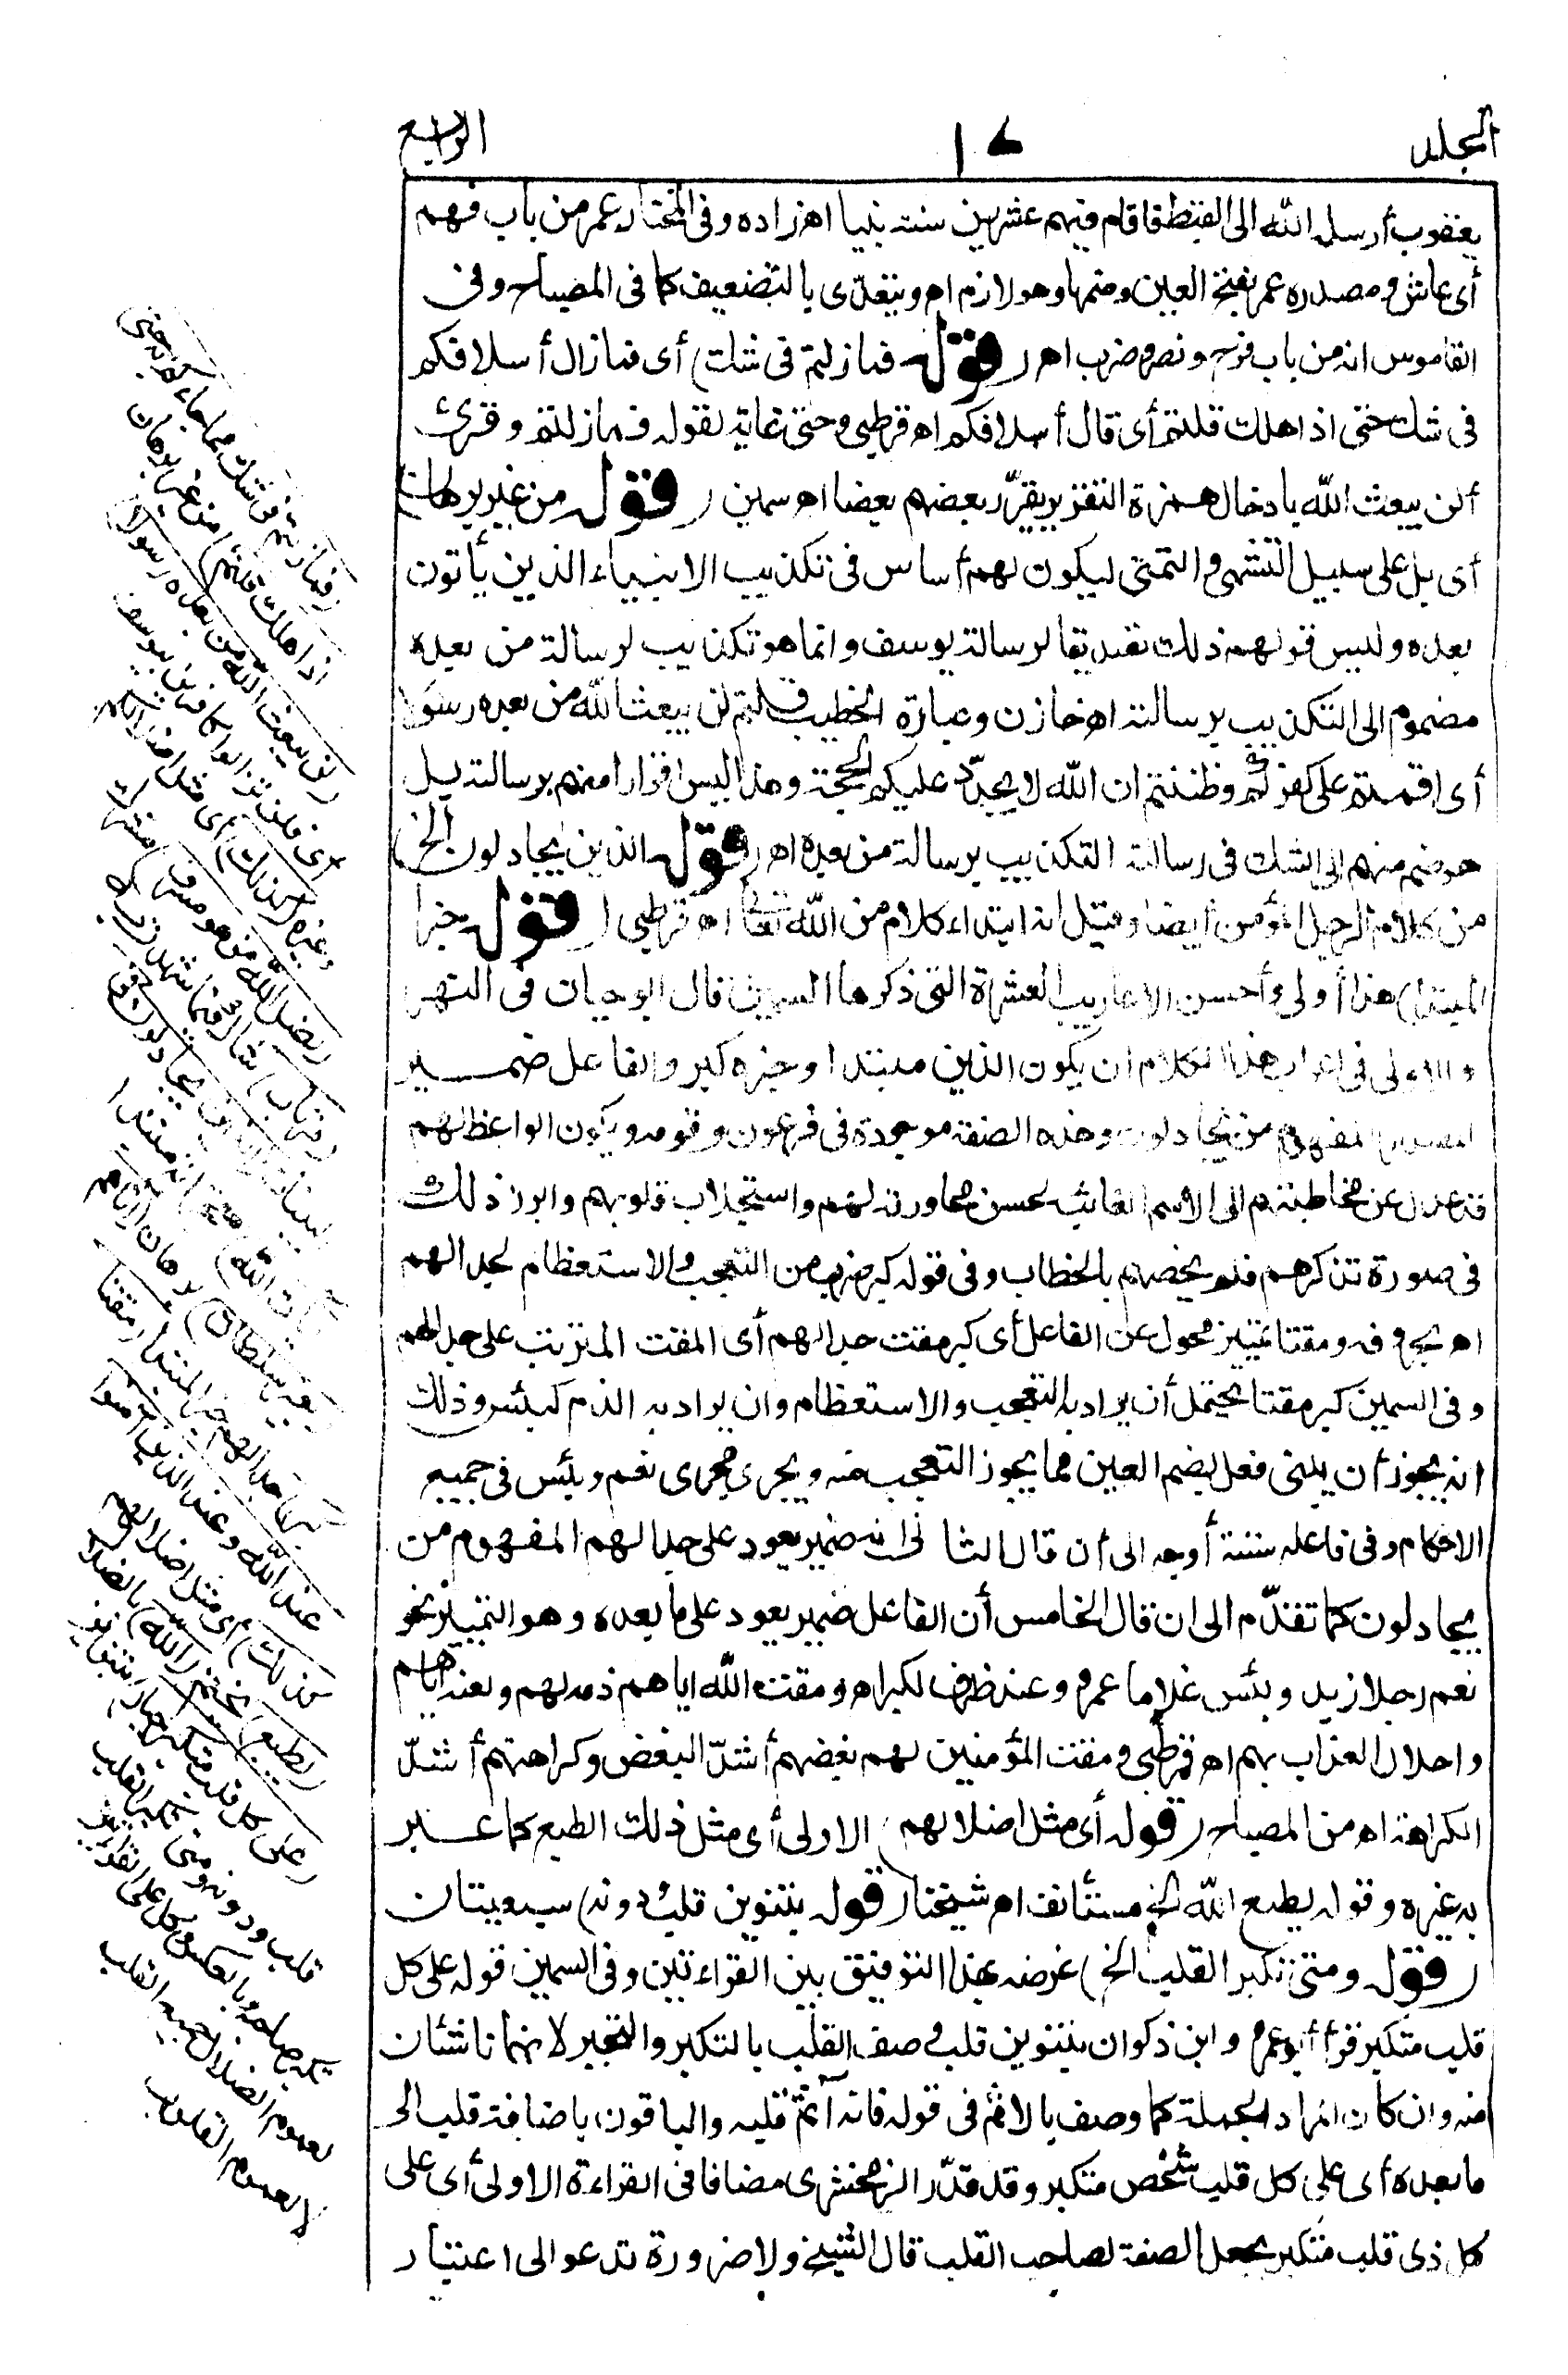 المجلد
١٧
الرابع
يعقوب أرسله الله الى القبط فاقام فيهم عشرين سنة نبيا اه زاده وفى المختار عمر من باب فهم
أى عاش ومصدره عمر بفتح العين وضمها وهو لازم اه ويتعدّى بالتضعيف كما فى المصباح وفى
القاموس انه من باب فرح ونصر وضرب اه (قوله فما زلتم فى شك) أى فما زال أسلافكم
فى شك حتى اذا هلك قلتم أى قال أسلافكم اه قرطبى وحتى غاية لقوله فما زلتم وقرئ
ألن يبعث الله بادخال همزة التقرير يقرّر بعضهم بعضا اه سمين (قوله من غير برهان)
أى بل على سبيل التشهى والتمنى ليكون لهم أساس فى تكذيب الانبياء الذين يأتون
بعده وليس قولهم ذلك تصديقا لرسالة يوسف وانما هو تكذيب لرسالة من بعده
مضموم الى التكذيب برسالته اه خازن وعبارة الخطيب قلتم لن يبعث الله من بعده رسولا
أى اقمتم على كفركم وظننتم ان الله لا يجدّد عليكم الحجة وهذا ليس اقرارا منهم برسالته بل
هو ضم منهم الى الشك فى رسالته التكذيب برسالة من بعده اه (قوله الذين يجادلون الخ)
من كلام الرجل المؤمن أيضا وقيل انه ابتداء كلام من الله تعالى اه قرطبى (قوله خبر
المبتدا) هذا أولى وأحسن الاعاريب العشرة التى ذكرها السمين قال ابو حيان فى النهر
والاولى فى اعراب هذا الكلام ان يكون الذين مبتدا وخبره كبر والفاعل ضمير
المصدر المفهوم من يجادلون وهذه الصفة موجودة فى فرعون وقومه ويكون الواعظ لهم
قد عدل عن مخاطبتهم الى الاسم الغائب لحسن محاورته لهم واستجلاب قلوبهم وابرز ذلك
فى صورة تذكرهم فلم يخصهم بالخطاب وفى قوله كبر ضرب من التعجب والاستعظام لجدالهم
اه بحروفه ومقتا تمييز محول عن الفاعل أى كبر مقت جدالهم أى المقت المترتب على جدالهم
وفى السمين كبر مقتا يحتمل أن يراد به التعجب والاستعظام وان يراد به الذم كبئس وذلك
انه يجوز أن يبنى فعل بضم العين مما يجوز التعجب منه ويجرى مجرى نعم وبئس فى جميع
الاحكام وفى فاعله ستة أوجه الى أن قال الثانى انه ضمير يعود على جدالهم المفهوم من
يجادلون كما تقدّم الى ان قال الخامس أن الفاعل ضمير يعود على ما بعده وهو التمييز نحو
نعم رجلا زيد وبئس غلاما عمرو وعند ظرف لكبر اه ومقت الله اياهم ذمه لهم ولعنه اياهم
واحلال العذاب بهم اه قرطبى ومقت المؤمنين لهم بغضهم أشدّ البغض وكراهتهم أشدّ
الكراهة اه من المصباح (قوله أى مثل اضلالهم) الاولى أى مثل ذلك الطبع كما عبر
به غيره وقوله يطبع الله الخ مستأنف اه شيخنا (قوله بتنوين قلب ودونه) سبعيتان
(قوله ومتى تكبر القلب الخ) غرضه بهذا التوفيق بين القراءتين وفى السمين قوله على كل
قلب متكبر قرأ أبو عمرو وابن ذكوان بتنوين قلب وصف القلب بالتكبر والتجبر لانهما ناشئان
منه وان كان المراد الجملة كما وصف بالاثم فى قوله فانه آثم قلبه والباقون باضافة قلب الى
ما بعده أى على كل قلب شخص متكبر وقد قدّر الزمخشرى مضافا فى القراءة الاولى أى على
كل ذى قلب متكبر بجعل الصفة لصاحب القلب قال الشيخ ولا ضرورة تدعو الى اعتبار
(فما زلتم فى شك مما جاءكم به حتى
اذا هلك قلتم) من غير برهان
(لن يبعث الله من بعده رسولا)
أى فلن تزالوا كافرين بيوسف
وغيره (كذلك) أى مثل اضلالكم
(يضل الله من هو مسرف) مشرك
(مرتاب) شاك فيما شهدت به
البينات (الذين يجادلون فى
آيات الله) معجزاته مبتدا
(بغير سلطان) برهان (أتاهم
كبر) جدالهم خبر المبتدا (مقتا
عند الله وعند الذين آمنوا
كذلك) أى مثل اضلالهم
(يطبع) يختم (الله) بالضلال
(على كل قلب متكبر جبار) بتنوين
قلب ودونه ومتى تكبر القلب
تكبر صاحبه وبالعكس وكل على القراءتين
لعموم الضلال جميع القلب
لا لعموم القلوب